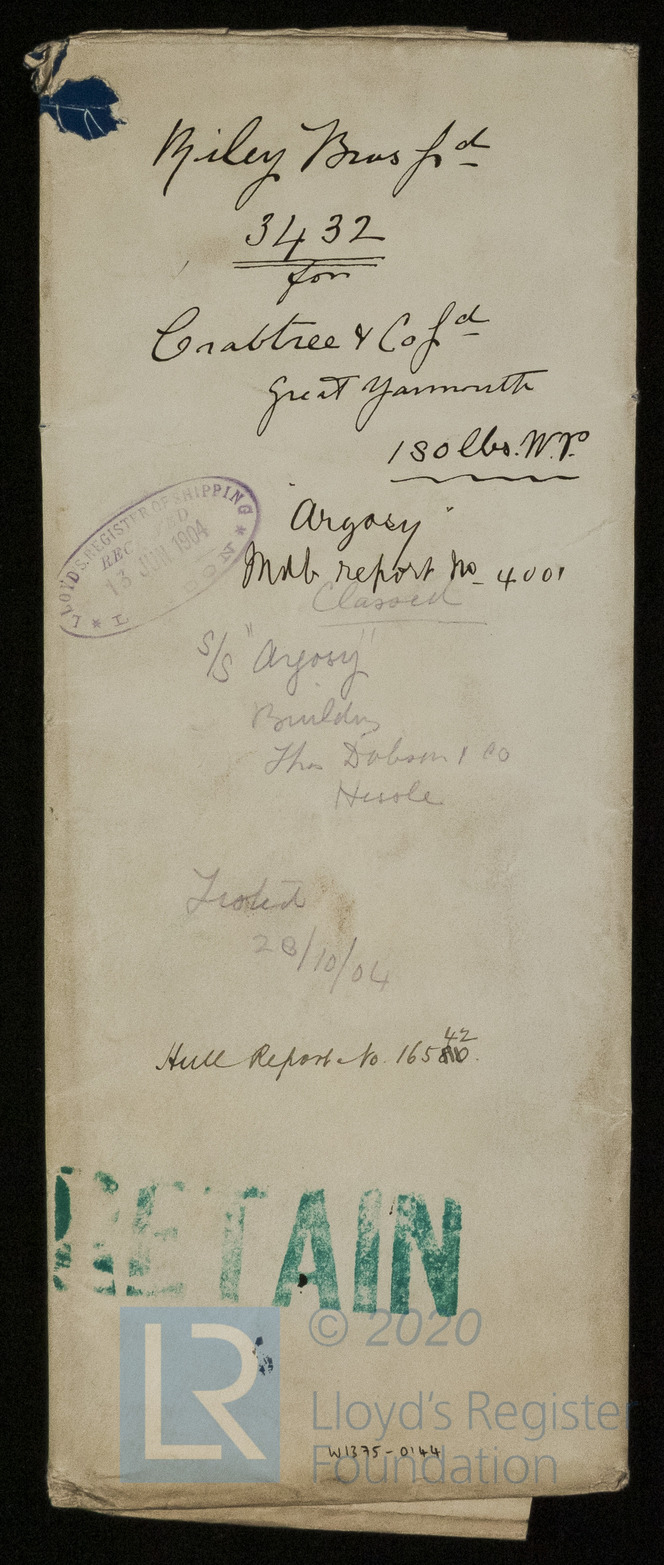 Riley Bros Ld
3432
for
Crabtree & Co Ld
Great Yarmouth
180 lbs. W.P.
"Argosy"
Mdb report No 4001
Classed
LLOYD'S REGISTER OF SHIPPING
RECEIVED
13 JUN 1904
S/S "Argosy"
Builders
Thos Dobson & Co
Hessle
Tested
28/10/04
42
Hull Report No. 165
RETAIN
© 2020
LR
Lloyd's Register
Foundation
W1375-0144